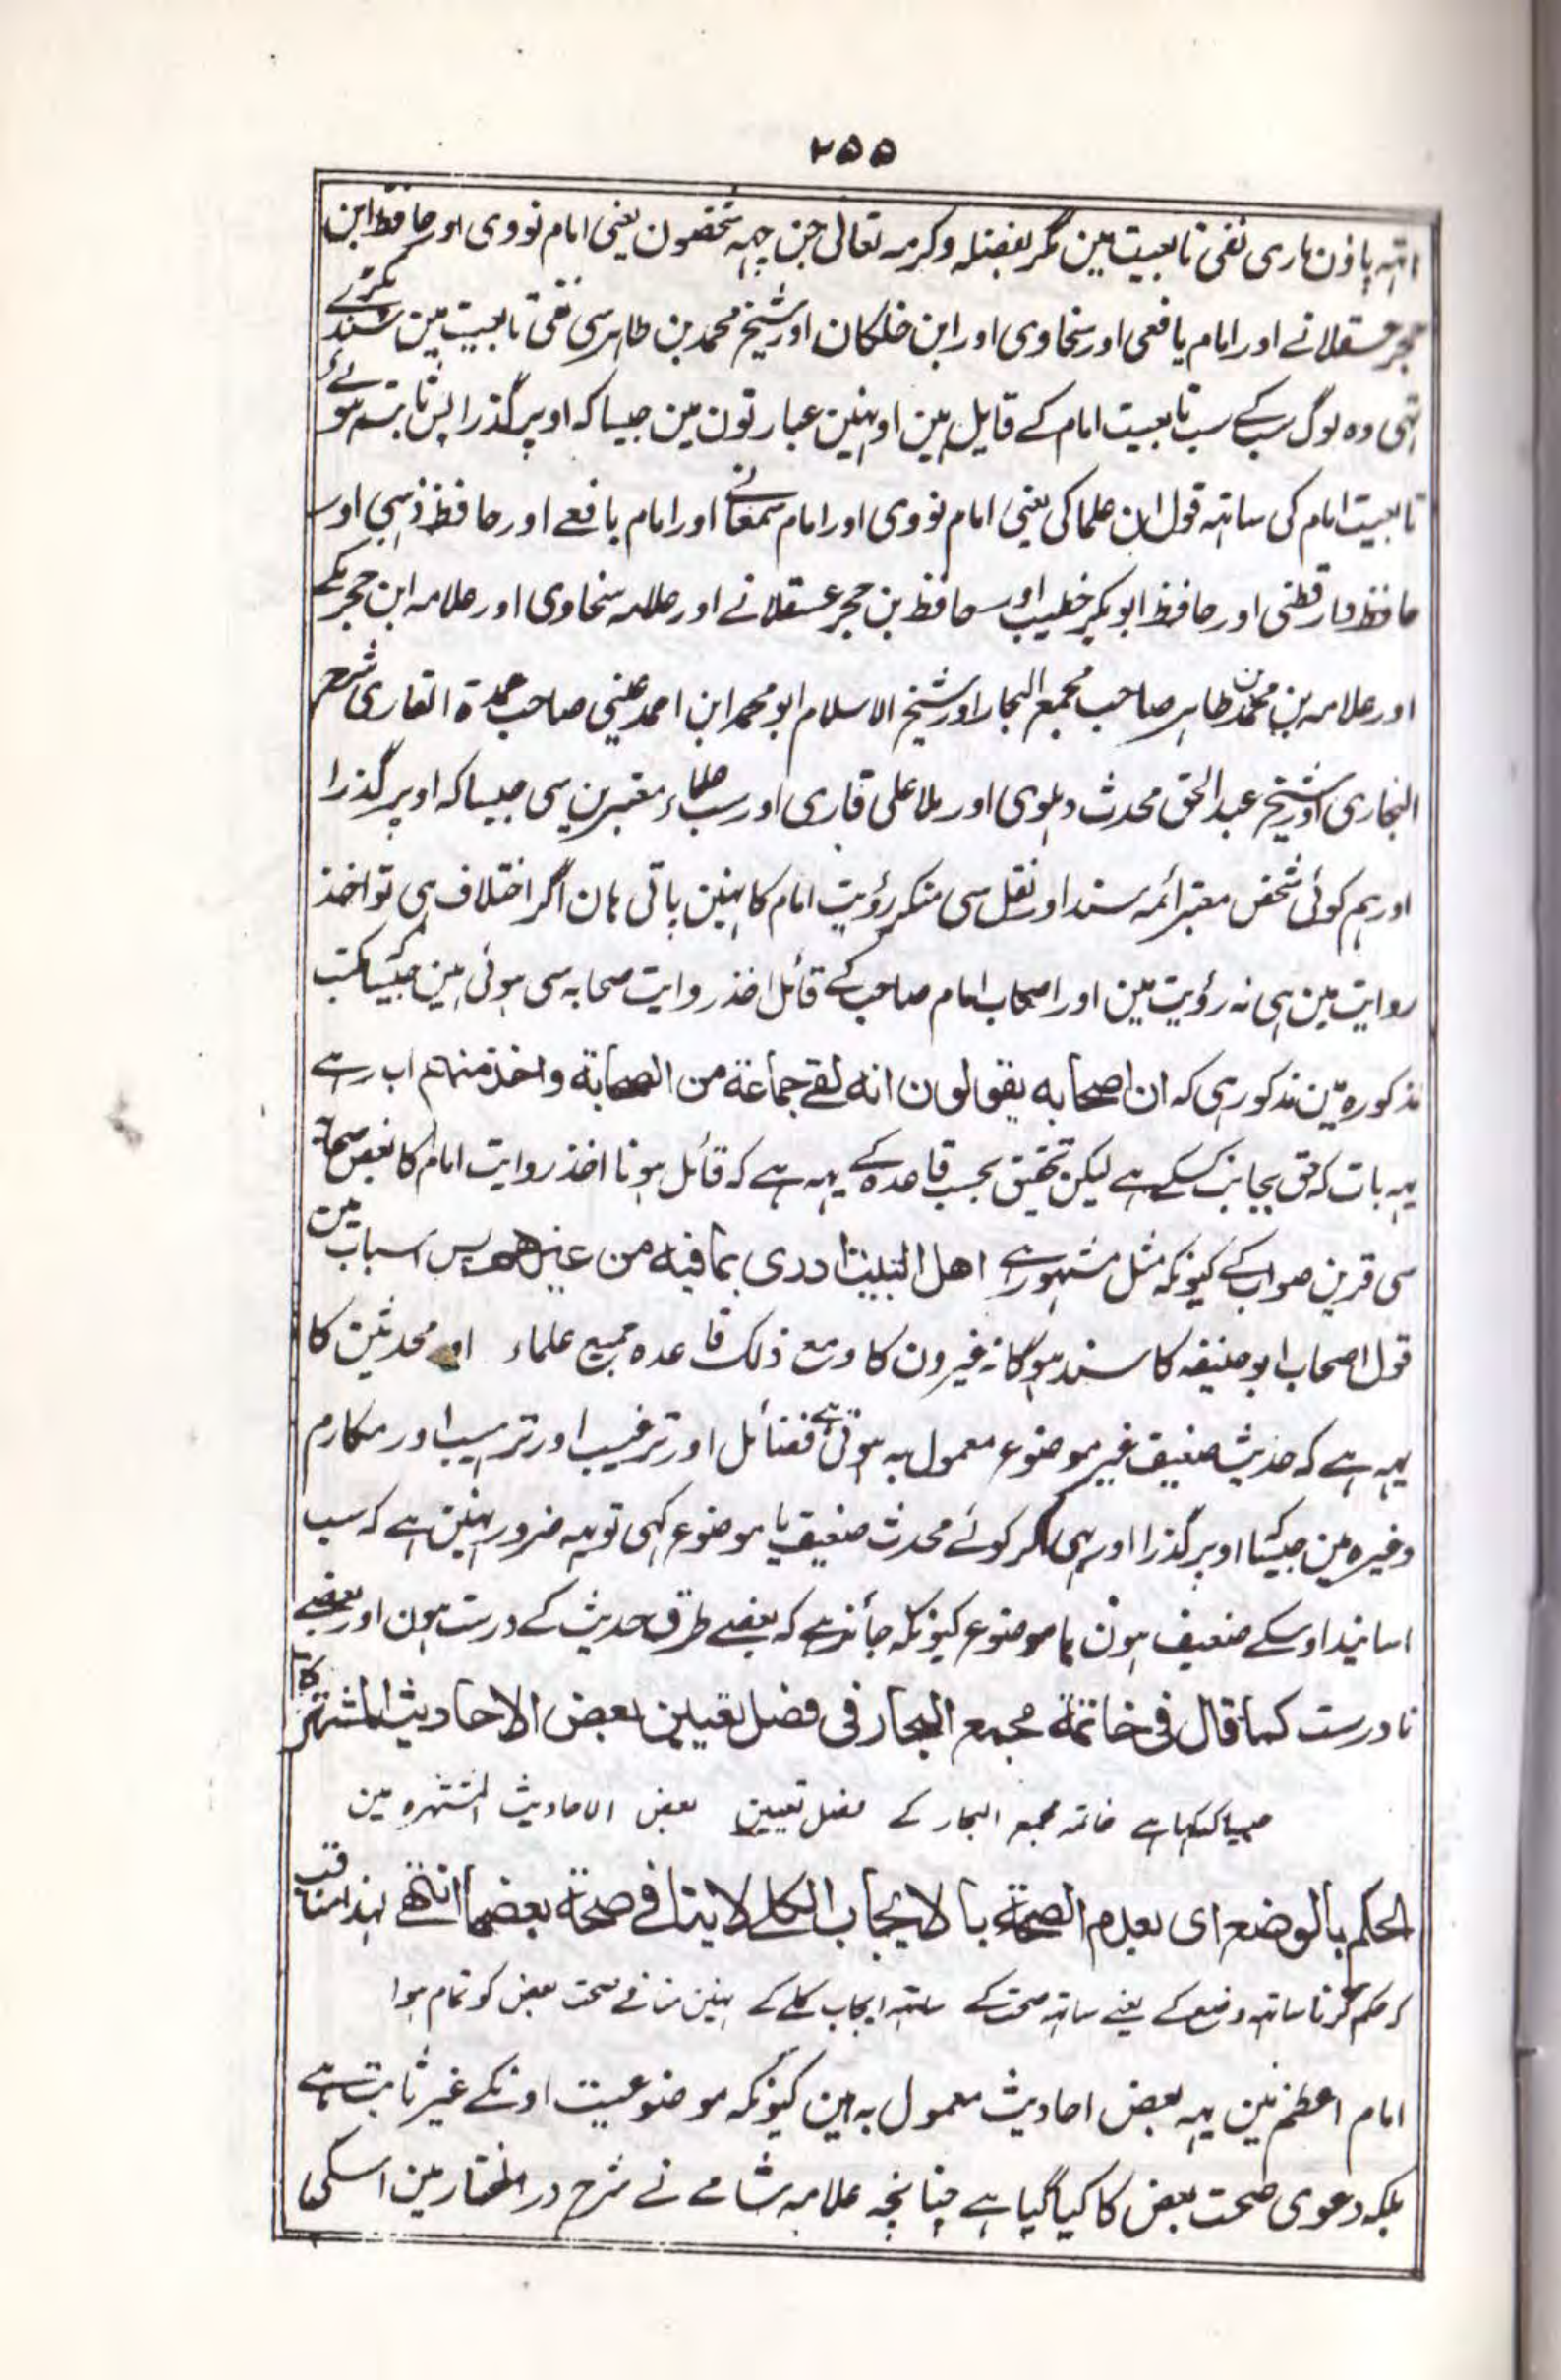 ۲۵۵
اتہہ پاؤن ماری نفی تابعیت مین مگر بفضلہ وکرمہ تعالی جن چہہ شخصون یعنی امام نووی اور حافظ ابن
حجر عسقلانے اور امام یافعی اور سخاوی اور ابن خلکان اور شیخ محمد بن طاہر سی نفی تابعیت مین سند پکڑے
تہی وہ لوگ سب کے سب تابعیت امام کے قایل ہین اونہین عبارتون مین جیسا کہ اوپر گذرا پس ثابت ہوئے
تابعیت امام کی ساتہہ قول ان علما کی یعنی امام نووی اور امام سمعانے اور امام یافعے اور حافظ ذہبی اور
حافظ دارقطنی اور حافظ ابو بکر خطیب اور حافظ بن حجر عسقلانے اور علامہ سخاوی اور علامہ ابن حجر مکے
اور علامہ بن محمد طاہر صاحب مجمع البحار اور شیخ الاسلام ابو محمد ابن احمد عینی صاحب عمدة القاری شرح
البخاری اور شیخ عبد الحق محدث دہلوی اور ملا علی قاری اور سب علماء معتبرین سی جیسا کہ اوپر گذرا
اور ہم کوئی شخص معتبر ائمہ سند اور نقل سی منکر رؤیت امام کا نہین پاتی ہان اگر اختلاف ہی تو اخذ
روایت مین ہی نہ رؤیت مین اور اصحاب امام صاحب کے قائل اخذ روایت صحابہ سی ہوئی ہین جیسا کتب
مذکورہ مین مذکور ہی کہ ان اصحابه يقولون انه لقے جماعة من الصحابة واخذ منهم اب رہے
یہہ بات کہ حق بجانب کسکے ہے لیکن تحقیق بحسب قاعدہ کے یہہ ہے کہ قائل ہونا اخذ روایت امام کا بعض صحابہ
سی قرین صواب کے کیونکہ مثل مشہور ہے اهل البيت ادرى بما فيه من غيرهم پس اس باب مین
قول اصحاب ابو حنیفہ کا سند ہوگا نہ غیرون کا ومع ذلک قاعدہ جمیع علماء اور محدثین کا
یہہ ہے کہ حدیث ضعیف غیر موضوع معمول بہ ہوتی ہے فضائل اور ترغیب اور ترہیب اور مکارم
وغیرہ مین جیسا اوپر گذرا اور بہی اگر کوئے محدث ضعیف یا موضوع کہی تو یہہ ضرور نہین ہے کہ سب
اسانید اوسکے ضعیف ہون یا موضوع کیونکہ جائز ہے کہ بعضے طرق حدیث کے درست ہون اور بعضے
نادرست كما قال فى خاتمة مجمع البحار فى فصل تعيين بعض الاحاديث المشتهرة
جیسا کہ کہا ہے خاتمہ مجمع البحار کے فصل تعیین بعض الاحادیث المشتہرہ مین
الحكم بالوضع اى بعدم الصحة بالايجاب الكلے لاينافے صحة بعضها انتهے لہذا مناقب
کہ حکم کرنا ساتہہ وضع کے یعنے ساتہہ صحت کے ساتہہ ایجاب کلے کے نہین منافے صحت بعض کو تمام ہوا
امام اعظم مین یہہ بعض احادیث معمول بہ ہین کیونکہ موضوعیت اونکے غیر ثابت ہے
بلکہ دعوی صحت بعض کا کیا گیا ہے چنانچہ علامہ شامے نے شرح در المختار مین اسکی